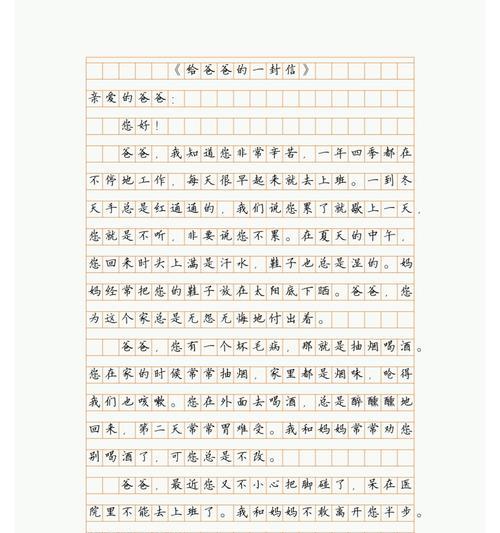 《给爸爸的一封信》
亲爱的爸爸:
您好!
爸爸,我知道您非常辛苦,一年四季都在
不停地工作,每天很早起来就去上班。一到冬
天手总是红通通的,我们说您累了就歇上一天,
您就是不听,非要说您不累。在夏天的中午,
您回来时头上满是汗水,鞋子也总是湿的。妈
妈经常把您的鞋子放在太阳底下晒。爸爸,您
为这个家总是无怨无悔地付出着。
爸爸,您有一个坏毛病,那就是抽烟喝酒。
您在家的时侯常常抽烟,家里都是烟味,呛得
我们也咳嗽。您在外面去喝酒,总是醉醺醺地
回来,第二天常常胃难受。我和妈妈常常劝您
别喝酒了,可您总是不改。
爸爸,最近您又不小心把脚碰了,呆在医
院里不能去上班了。我和妈妈不敢离开您半步。